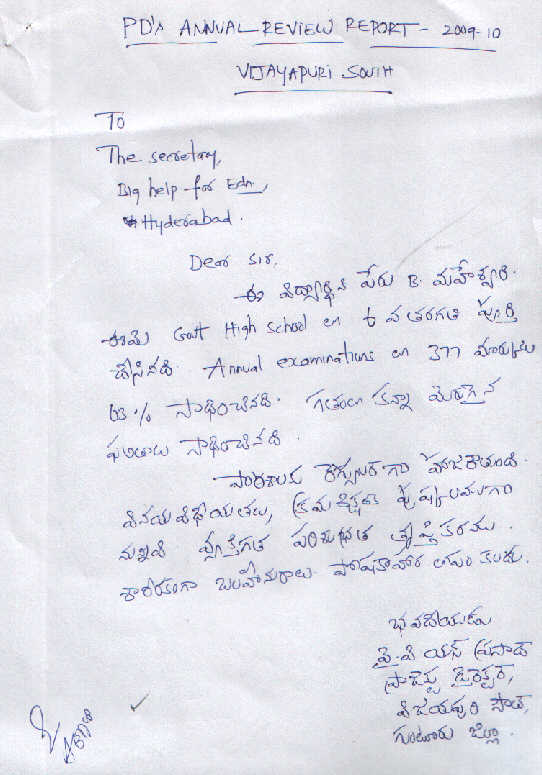 PD'S ANNUAL REVIEW REPORT - 2009-10
VIJAYAPURI SOUTH
To
The secretary,
Big help for Edn,
Hyderabad.
Dear Sir,
ఈ విద్యార్థిని పేరు B. మహేశ్వరి.
ఈమె Govt High School లో 6 వ తరగతి పూర్తి
చేసినది. Annual examinations లో 377 మార్కులు
63% సాధించినది. గతంలో కన్నా మెరుగైన
ఫలితాలు సాధించినది.
పాఠశాలకు రెగ్యులర్ గా హాజరౌతుంది.
వినయ విధేయతలు, క్రమశిక్షణ పుష్కలముగా
వ్యక్తిగత పరిశుభ్రత తృప్తికరము.
శారీరకంగా బలహీనురాలు. పోషకాహార లోపం కలదు.
భవదీయుడు
పై.వి యస్ ప్రసాద్
ప్రాజెక్టు డైరెక్టర్,
విజయపురి సౌత్,
గుంటూరు జిల్లా.